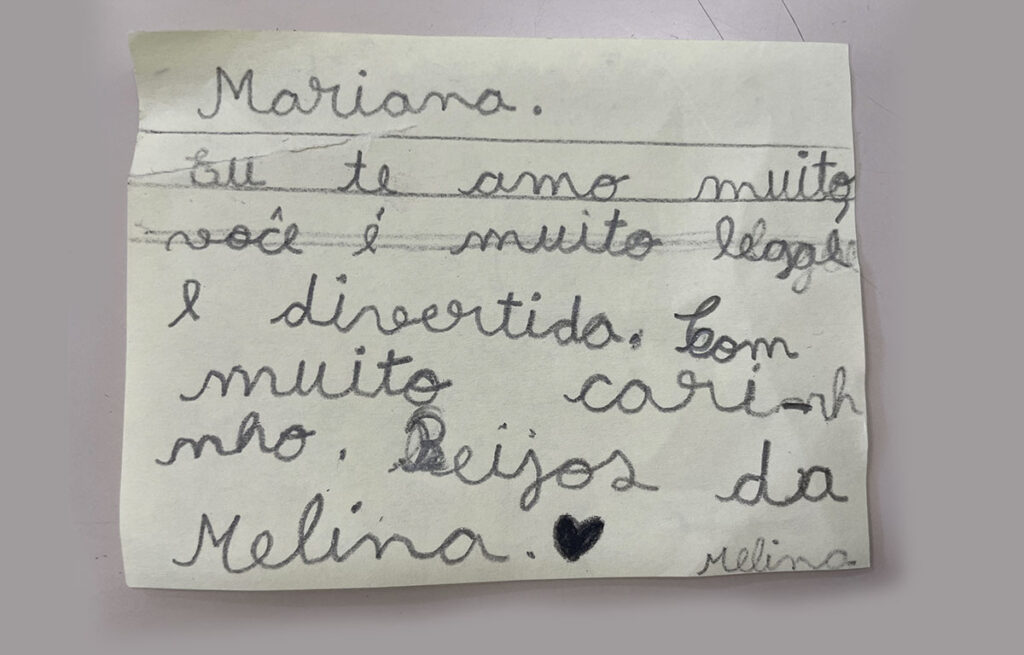 Mariana.
Eu te amo muito,
você é muito legal
e divertida. Com
muito cari-nh
nho. Beijos da
Melina. ♥
Melina